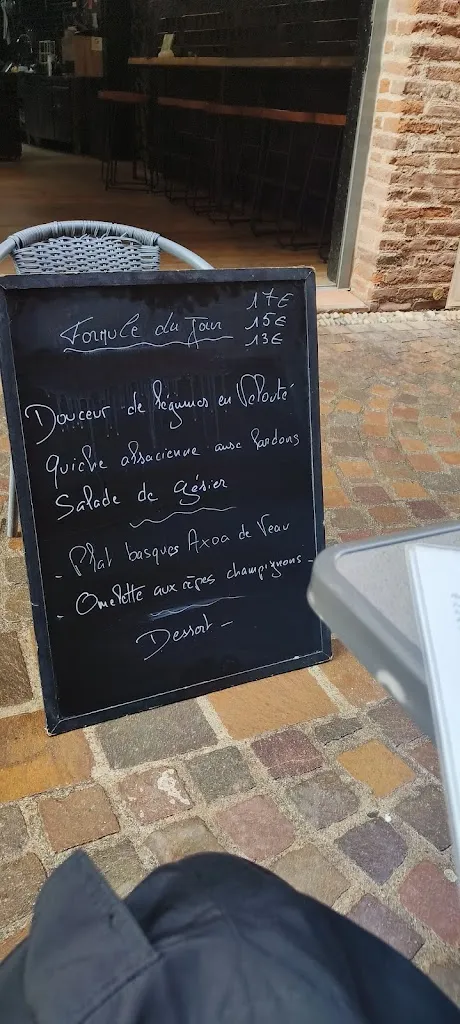 17€
Formule du Jour 15€
13€
Douceur de légumes en Velouté
Quiche alsacienne aux lardons
Salade de Gésier
- Plat basques Axoa de Veau
- Omelette aux cèpes champignons -
Dessert -